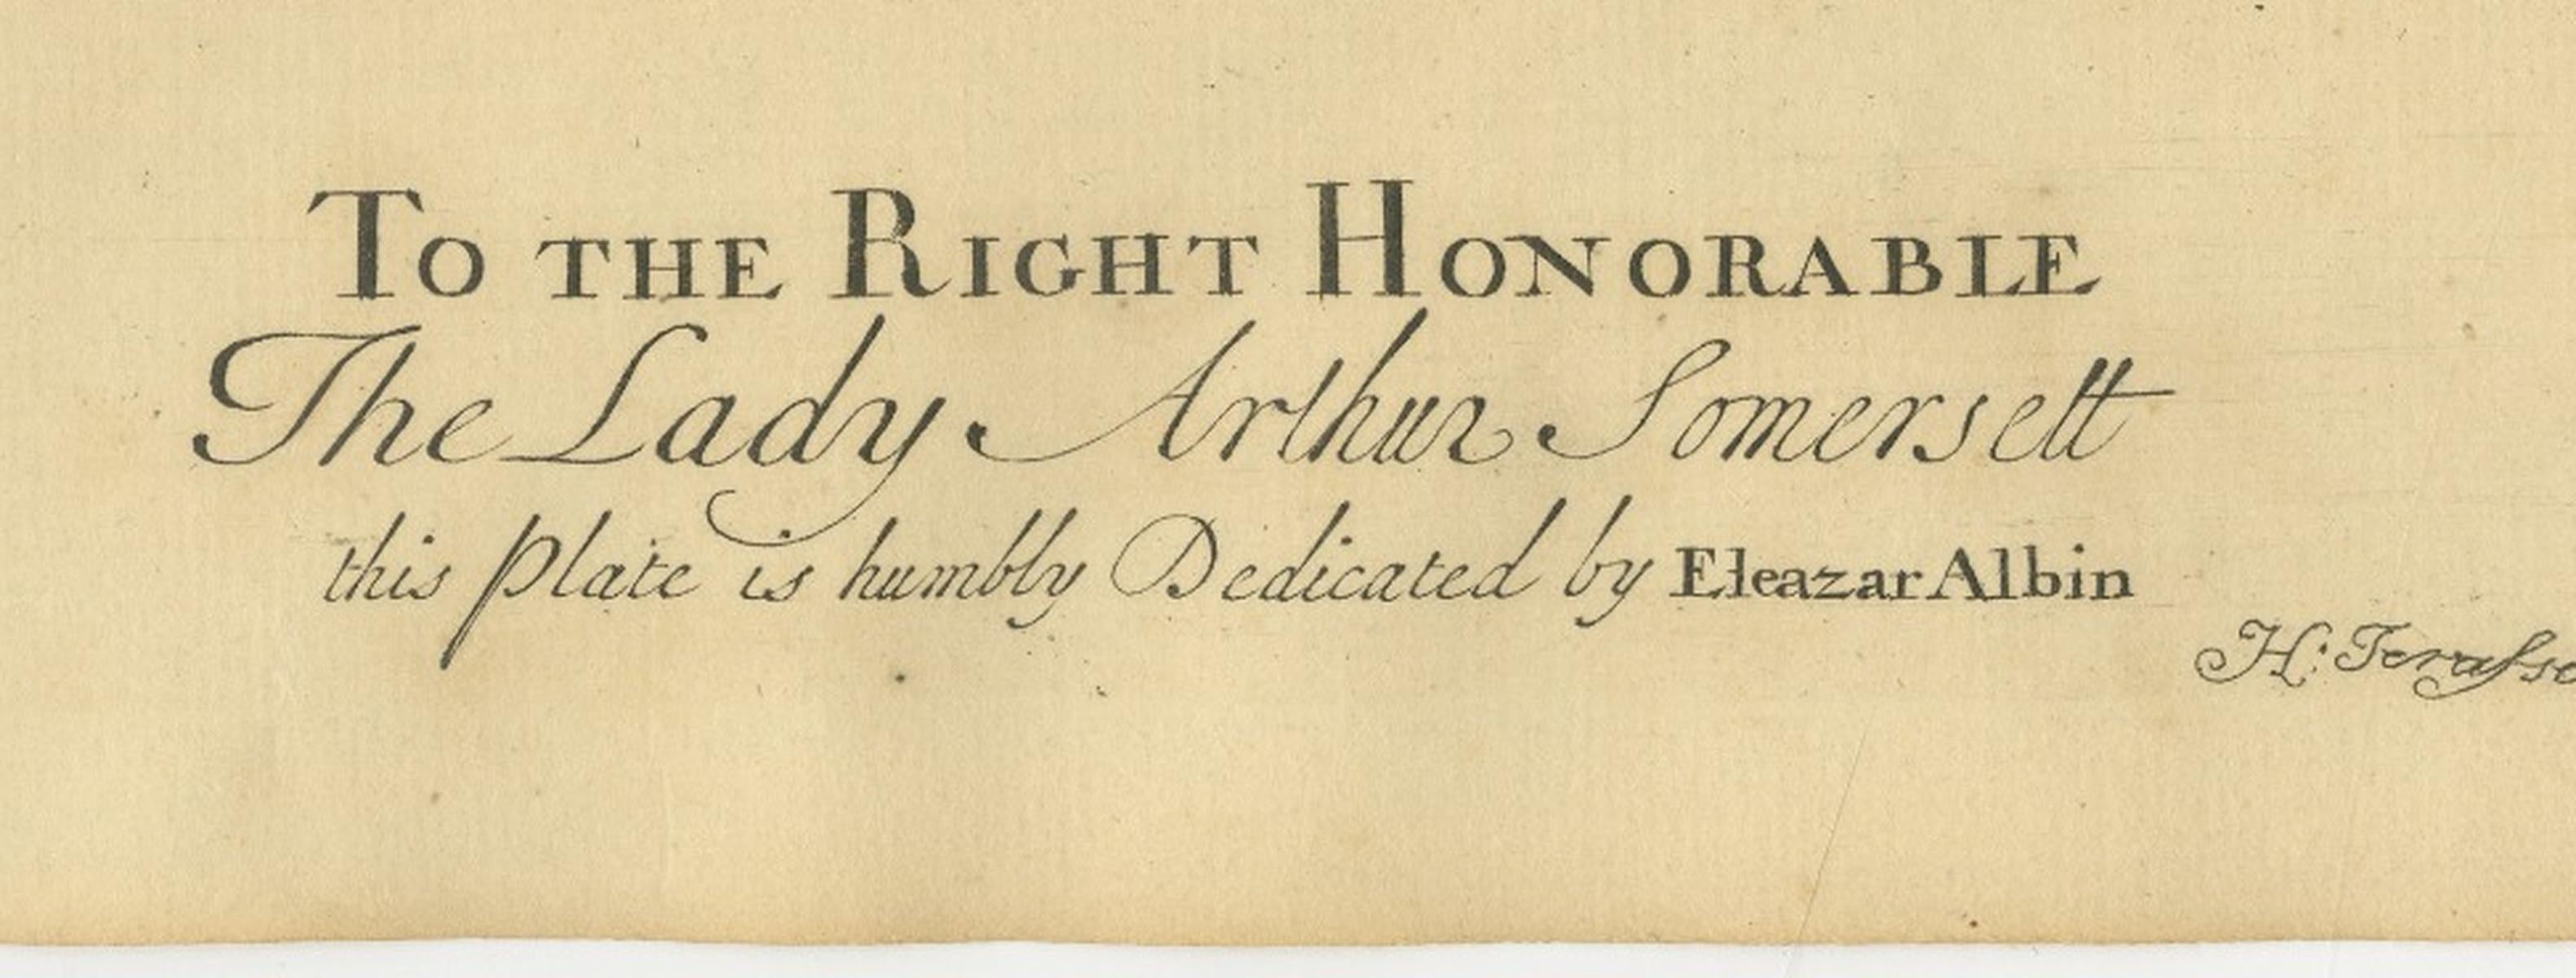 To the Right Honorable
The Lady Arthur Somersett
this Plate is humbly Dedicated by Eleazar Albin
H: Terasse